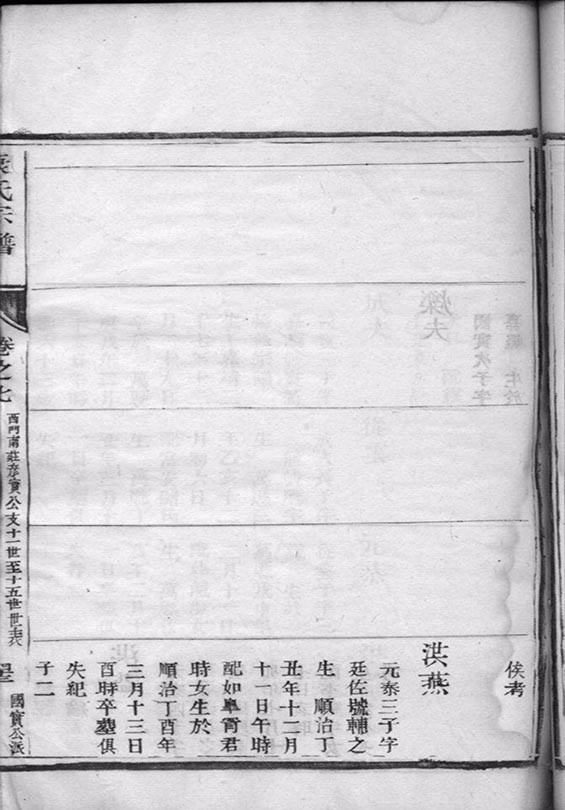 俟考
洪燕
元泰三子字
廷佐號輔之
生順治丁
丑年十二月
十一日午時
配如皋胥君
時女生於
順治丁酉年
三月十三日
酉時卒墓俱
失紀
子二
氏宗譜
卷之七
西門南莊彦實公支十一世至十五世世表
國實公派